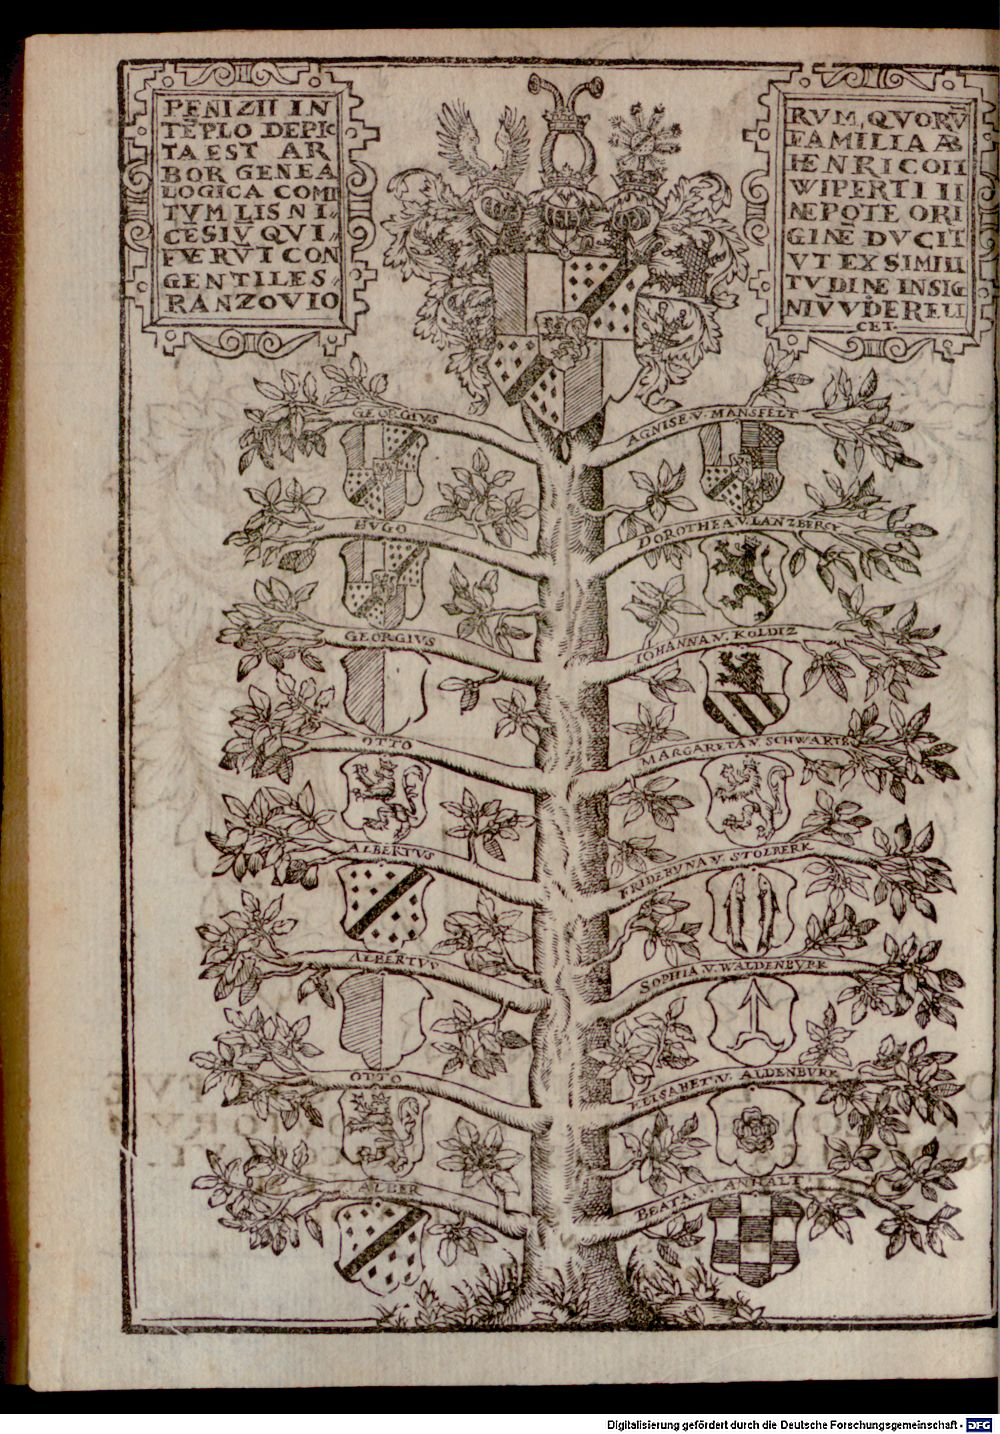 PENIZII IN
TĒPLO DEPIC
TA EST AR
BOR GENEA
LOGICA COMI
TVM LISNI⸗
CESIV̄ QVI⸗
FVERVT CON
GENTILES
RANZOVIO
RVM, QVORV̄
FAMILIA AB
HENRICO II
WIPERTI II
NEPOTE ORI
GINE DVCIT
VT EX SIMILI
TVDINE INSIG
NIV̄ VIDERE LI
CET.
GEORGIVS
AGNISE V. MANSFELT
HVGO
DOROTHEA V. LANZBERGK
GEORGIVS
IOHANNA V. KOLDIZ
OTTO
MARGARETA V SCHWARTB
ALBERTVS
FRIDERVNA V. STOLBERK
ALBERTVS
SOPHIA V. WALDENBVRK
OTTO
ELISABET V. ALDENBVRK
ALBER
BEATA. V. ANHALT
Digitalisierung gefördert durch die Deutsche Forschungsgemeinschaft - DFG